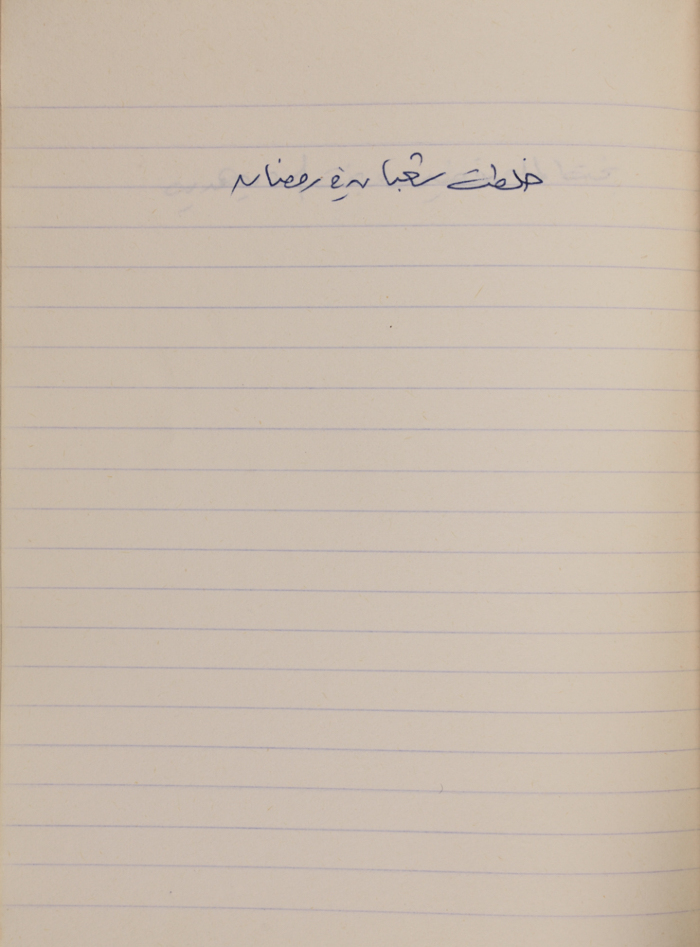 خلطت شعبان في رمضان